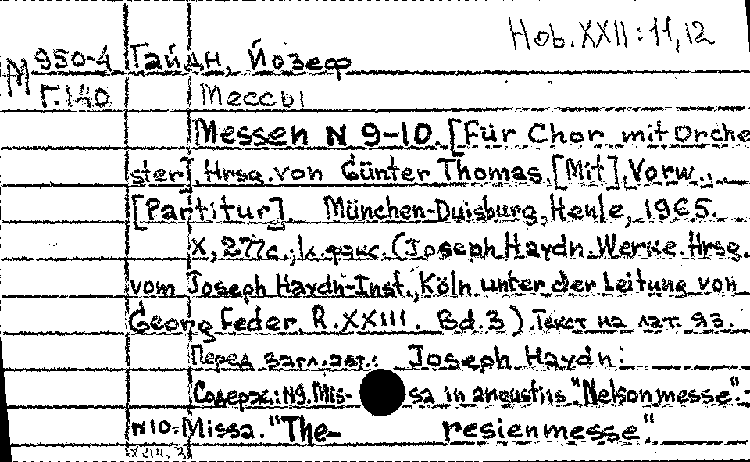 Hob. XXII : 11, 12
М 950-4 Гайдн, Йозеф
Г.140 Мессы
Messen N 9-10. [Für Chor mit Orche
ster]. Hrsg. von Günter Thomas. [Mit] Vorw.
[Partitur]. München-Duisburg, Henle, 1965.
X, 277с.; 1л. факс. (Joseph Haydn. Werke. Hrsg.
vom Joseph Haydn-Inst., Köln unter der Leitung von
Georg Feder. R. XXIII. Bd. 3). Текст на лат. яз.
Перед загл. авт.: Joseph Haydn:
Содерж.: N9. Missa in angustiis "Nelsonmesse".-
N10. Missa. "The-resienmesse".